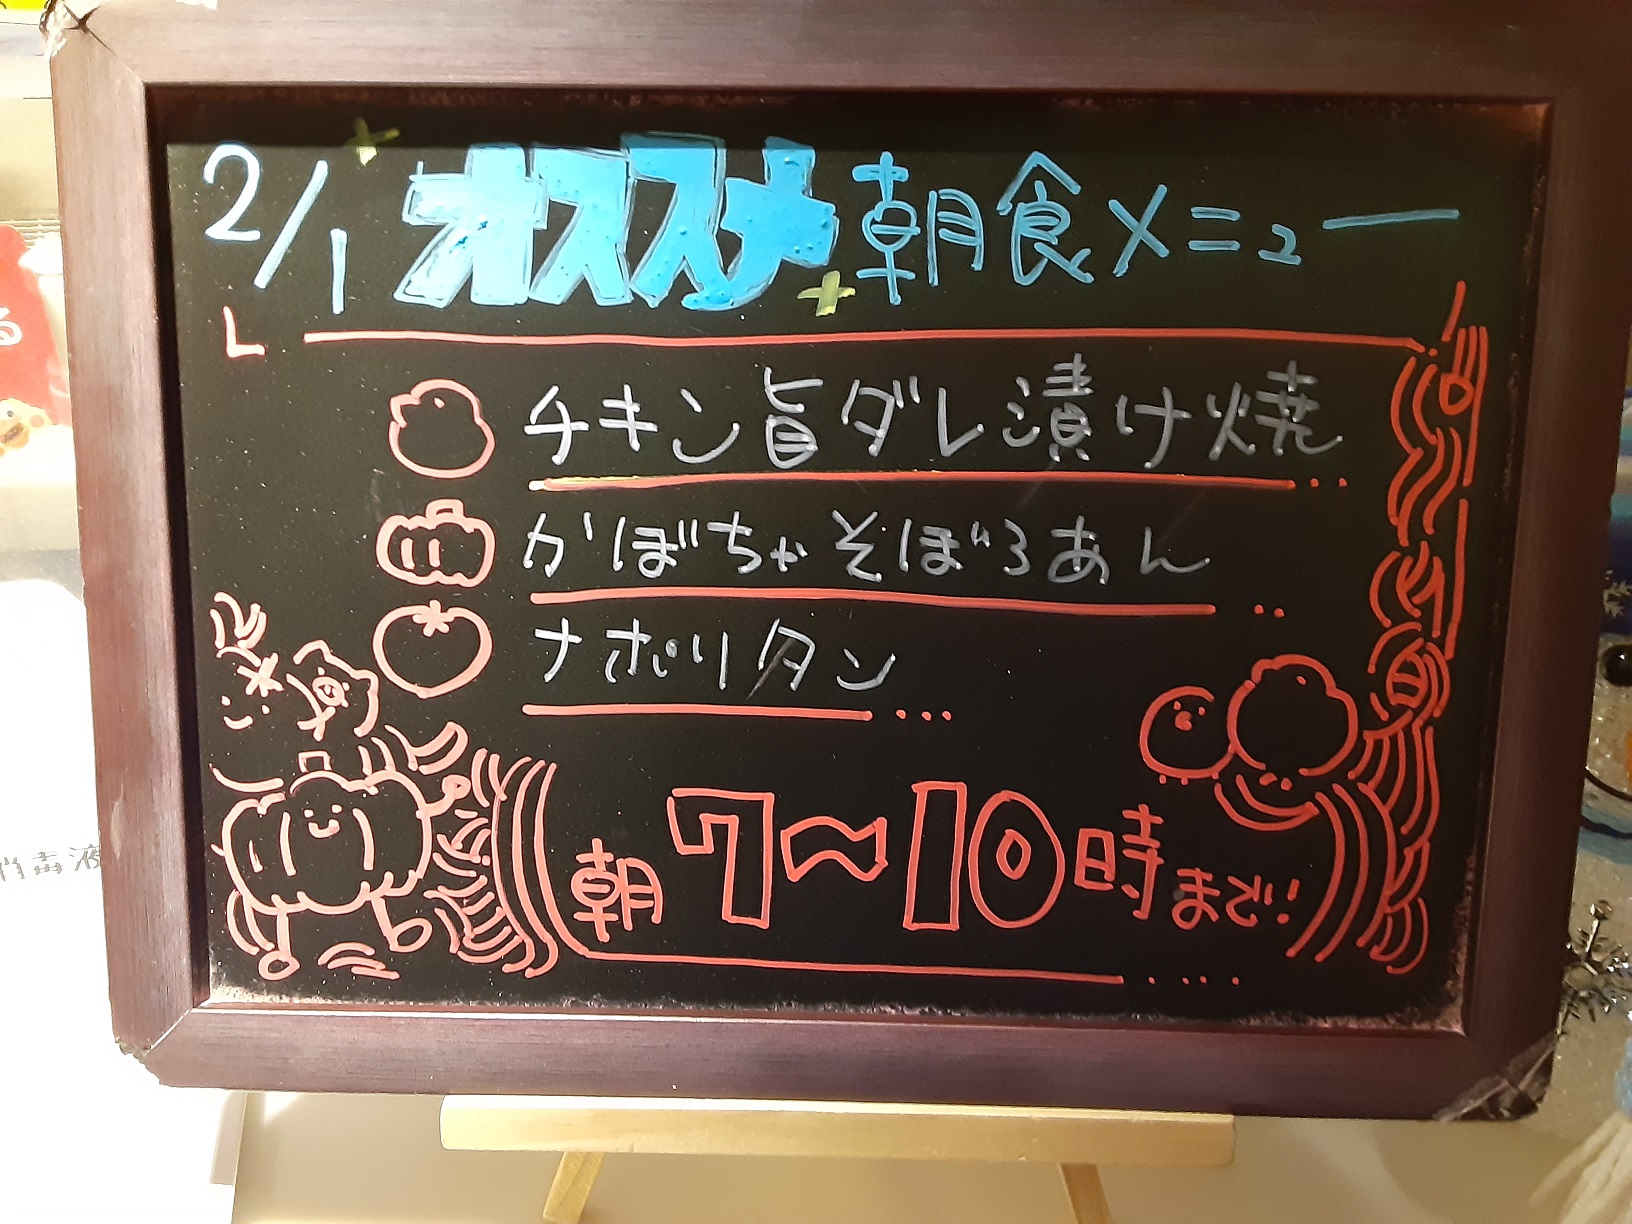 2/1 オススメ 朝食メニュー
チキン旨ダレ漬け焼...
かぼちゃそぼろあん..
ナポリタン...
朝7〜10時まで!....
る
消毒液